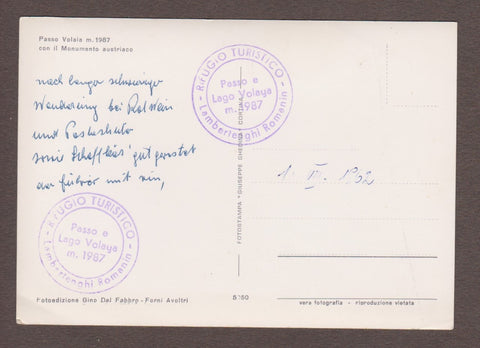 Passo Volaia m. 1987
con il Monumento austriaco
nach langer schwieriger
Wanderung bei Rotwein
und Pastaschuta
sowie Schaffkäs' gut gerastet
der Führer mit ein,
RIFUGIO TURISTICO
Passo e
Lago Volaya
m. 1987
Lamberlenghi Romanin
RIFUGIO TURISTICO
Passo e
Lago Volaya
m. 1987
Lamberlenghi Romanin
FOTOSTAMPA "GIUSEPPE GHEDINA" CORTINA
1. 1962
Fotoedizione Gino Del Fabbro - Forni Avoltri
5150
vera fotografia - riproduzione vietata